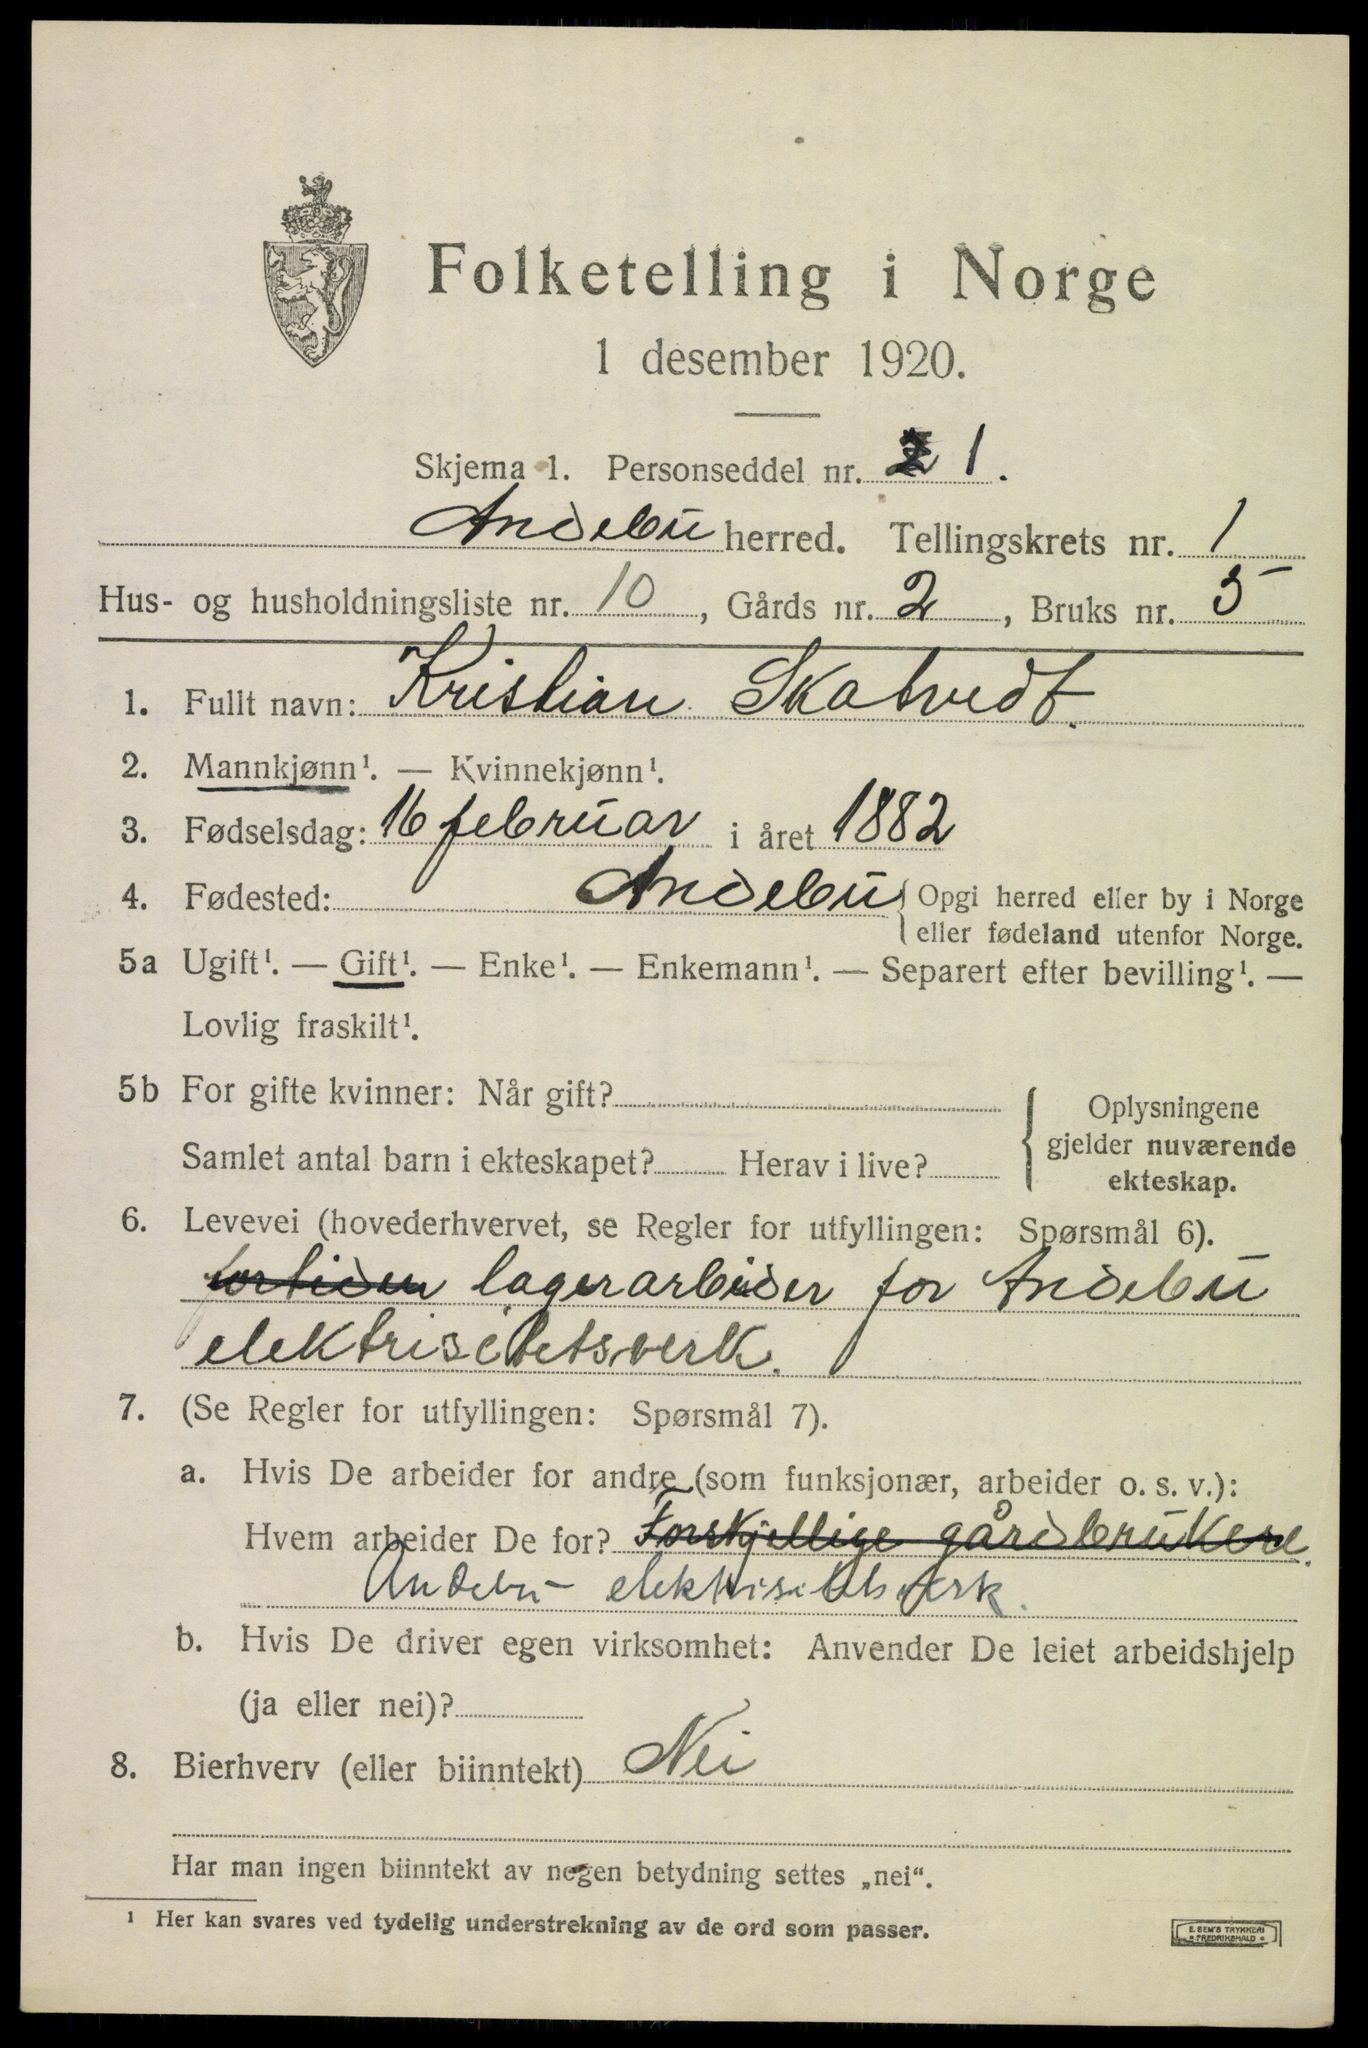 Folketelling i Norge
1 desember 1920.
Skjema 1. Personseddel nr. 1.
Andebu herred. Tellingskrets nr. 1
Hus- og husholdningsliste nr. 10, Gårds nr. 2, Bruks nr. 5
1. Fullt navn: Kristian Skatvedt.
2. Mannkjønn¹. — Kvinnekjønn¹.
3. Fødselsdag: 16 februar i året 1882
4. Fødested: Andebu { Opgi herred eller by i Norge
eller fødeland utenfor Norge.
5a Ugift¹. — Gift¹. — Enke¹. — Enkemann¹. — Separert efter bevilling¹. —
Lovlig fraskilt¹.
5b For gifte kvinner: Når gift?
Samlet antal barn i ekteskapet? Herav i live?
{ Oplysningene
gjelder nuværende
ekteskap.
6. Levevei (hovederhvervet, se Regler for utfyllingen: Spørsmål 6).
fortiden lagerarbeider for Andebu
elektrisitetsverk.
7. (Se Regler for utfyllingen: Spørsmål 7).
a. Hvis De arbeider for andre (som funksjonær, arbeider o. s. v.):
Hvem arbeider De for? Forskjellige gårdbrukere.
Andebu elektrisitetsverk.
b. Hvis De driver egen virksomhet: Anvender De leiet arbeidshjelp
(ja eller nei)?
8. Bierhverv (eller biinntekt) Nei
Har man ingen biinntekt av nogen betydning settes „nei“.
¹ Her kan svares ved tydelig understrekning av de ord som passer.
E. SEM'S TRYKKERI
FREDRIKSHALD